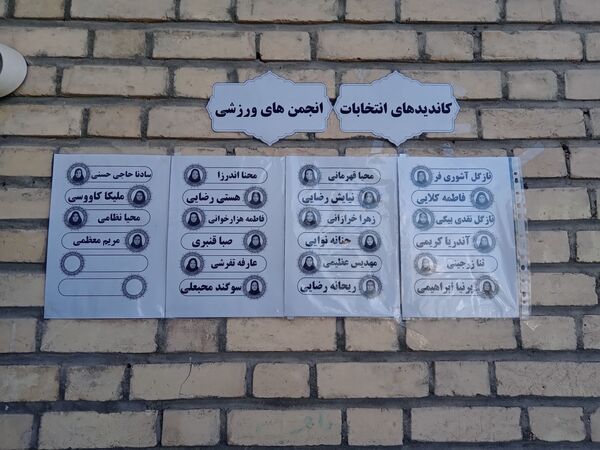 کاندیدهای انتخابات
انجمن های ورزشی
نازگل آشوری فر
فاطمه کلایی
نازگل نقدی بیگی
آندریا کریمی
ثنا زرجینی
پرنیا ابراهیمی
محیا قهرمانی
نیایش رضایی
زهرا خزارانی
حنانه نوایی
مهدیس عظیمی
ریحانه رضایی
محنا اندرزا
هستی رضایی
فاطمه هزارخوانی
صبا قنبری
عارفه تفرشی
سوگند محبعلی
سادنا حاجی حسنی
ملیکا کاووسی
محیا نظامی
مریم معظمی